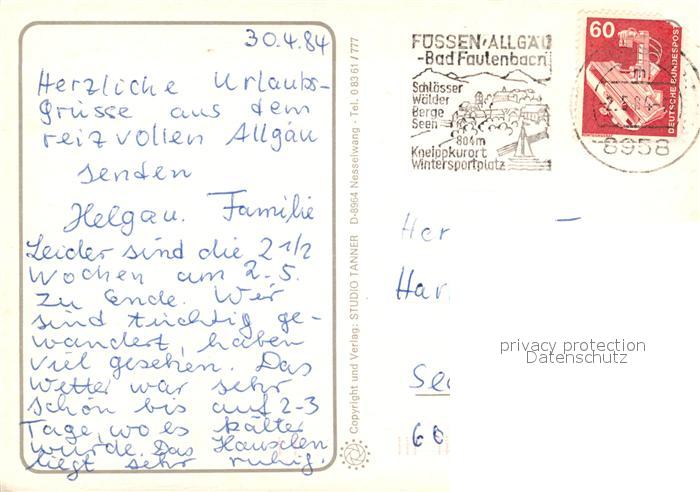 30.4.84
Herzliche Urlaubs-
grüsse aus dem
reizvollen Allgäu
senden
Helga u. Familie
Leider sind die 2 1/2
Wochen am 2.5.
zu Ende. Wir
sind tüchtig ge-
wandert, haben
viel gesehen. Das
Wetter war sehr
schön bis auf 2-3
Tage, wo es kälter
wurde. Das Häuschen
liegt sehr ruhig.
Copyright und Verlag: STUDIO TANNER D-8964 Nesselwang - Tel. 0 83 61 / 777
FÜSSEN/ALLGÄU
-Bad Faulenbach
Schlösser
Wälder
Berge
Seen
804m
Kneippkurort
Wintersportplatz
60
DEUTSCHE BUNDESPOST
2.5.84
8958
Her
Har
See
60
privacy protection
Datenschutz